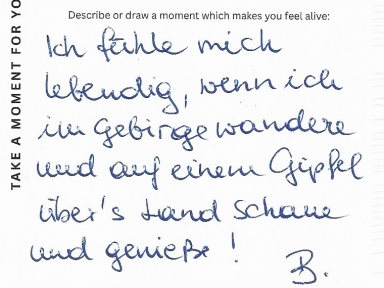 Describe or draw a moment which makes you feel alive:
TAKE A MOMENT FOR YO
Ich fühle mich
lebendig, wenn ich
im Gebirge wandere
und auf einem Gipfel
über's Land schaue
und genieße!
B.